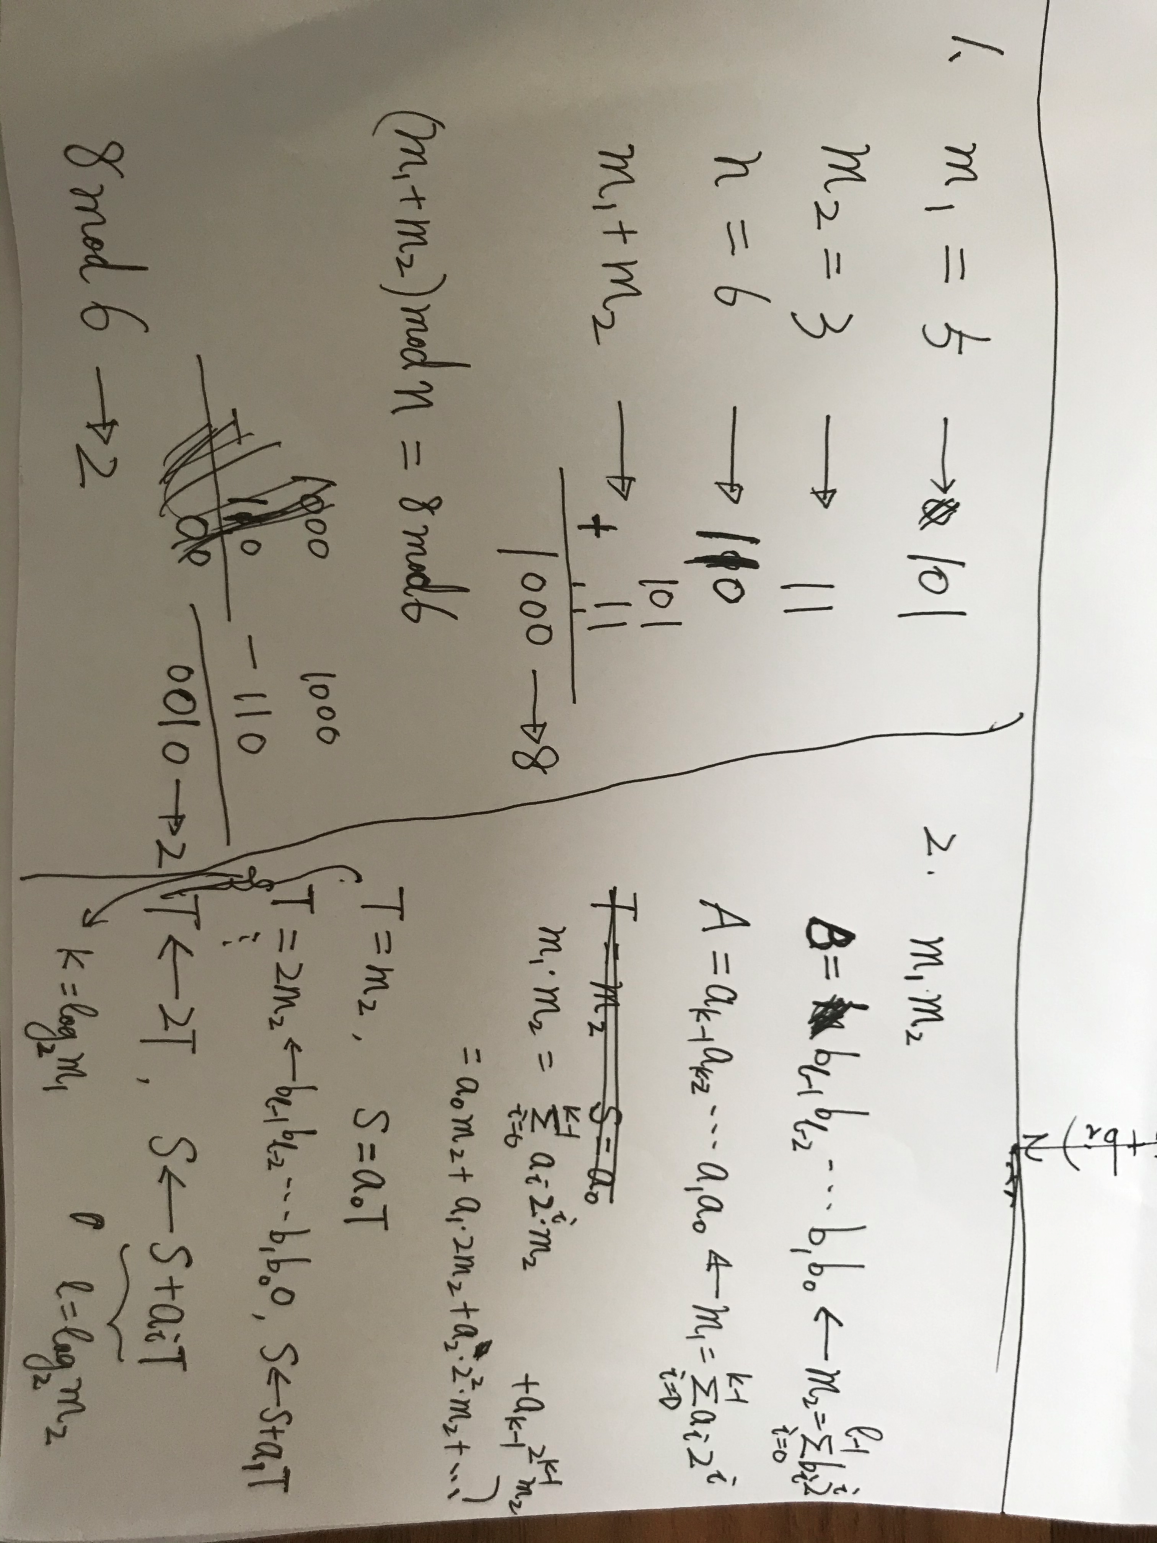 1、 m₁ = 5 → 101
m₂ = 3 → 11
n = 6 → 110
m₁ + m₂ → 101
+ 11
1000 → 8
(m₁ + m₂) mod n = 8 mod 6
1000
- 110
0010 → 2
8 mod 6 → 2
2. m₁·m₂
B = b_{l-1} b_{l-2} ... b₁ b₀ ← m₂ = Σ_{i=0}^{l-1} b_i 2^i
A = a_{k-1} a_{k-2} ... a₁ a₀ ← m₁ = Σ_{i=0}^{k-1} a_i 2^i
T = m₂ S = a₀
m₁·m₂ = Σ_{i=0}^{k-1} a_i 2^i·m₂
= a₀m₂ + a₁·2m₂ + a₂·2²·m₂ + ...
+ a_{k-1} 2^{k-1} m₂
T = m₂, S = a₀T
T = 2m₂ ← b_{l-1} b_{l-2} ... b₁ b₀ 0, S ← S + a₁T
T ← 2T, S ← S + a_i T
k = log₂ m₁ l = log₂ m₂